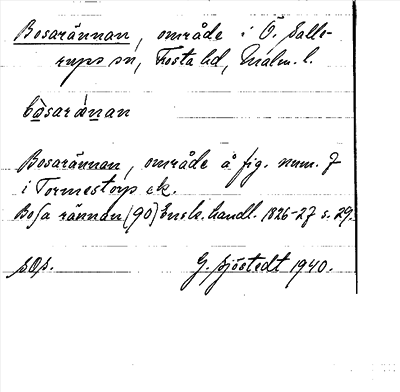 Bosarännan, område i Ö. Salle-
rups sn, Frosta hd, Malm. l.
bòsarànan
Bosarännan, område å fig. num. 7
i Tormestorps ek.
Bosa rännan (90) Ensk. handl. 1826-27 s. 29.
G. Sjöstedt 1940.